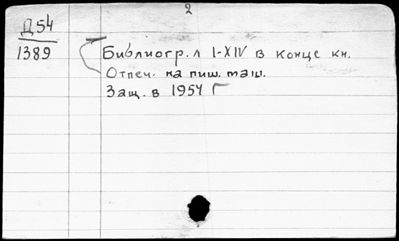 2
Д54
1389
Библиогр. л I-XIV в конце кн.
Отпеч. на пиш. маш.
Защ. в 1954 г